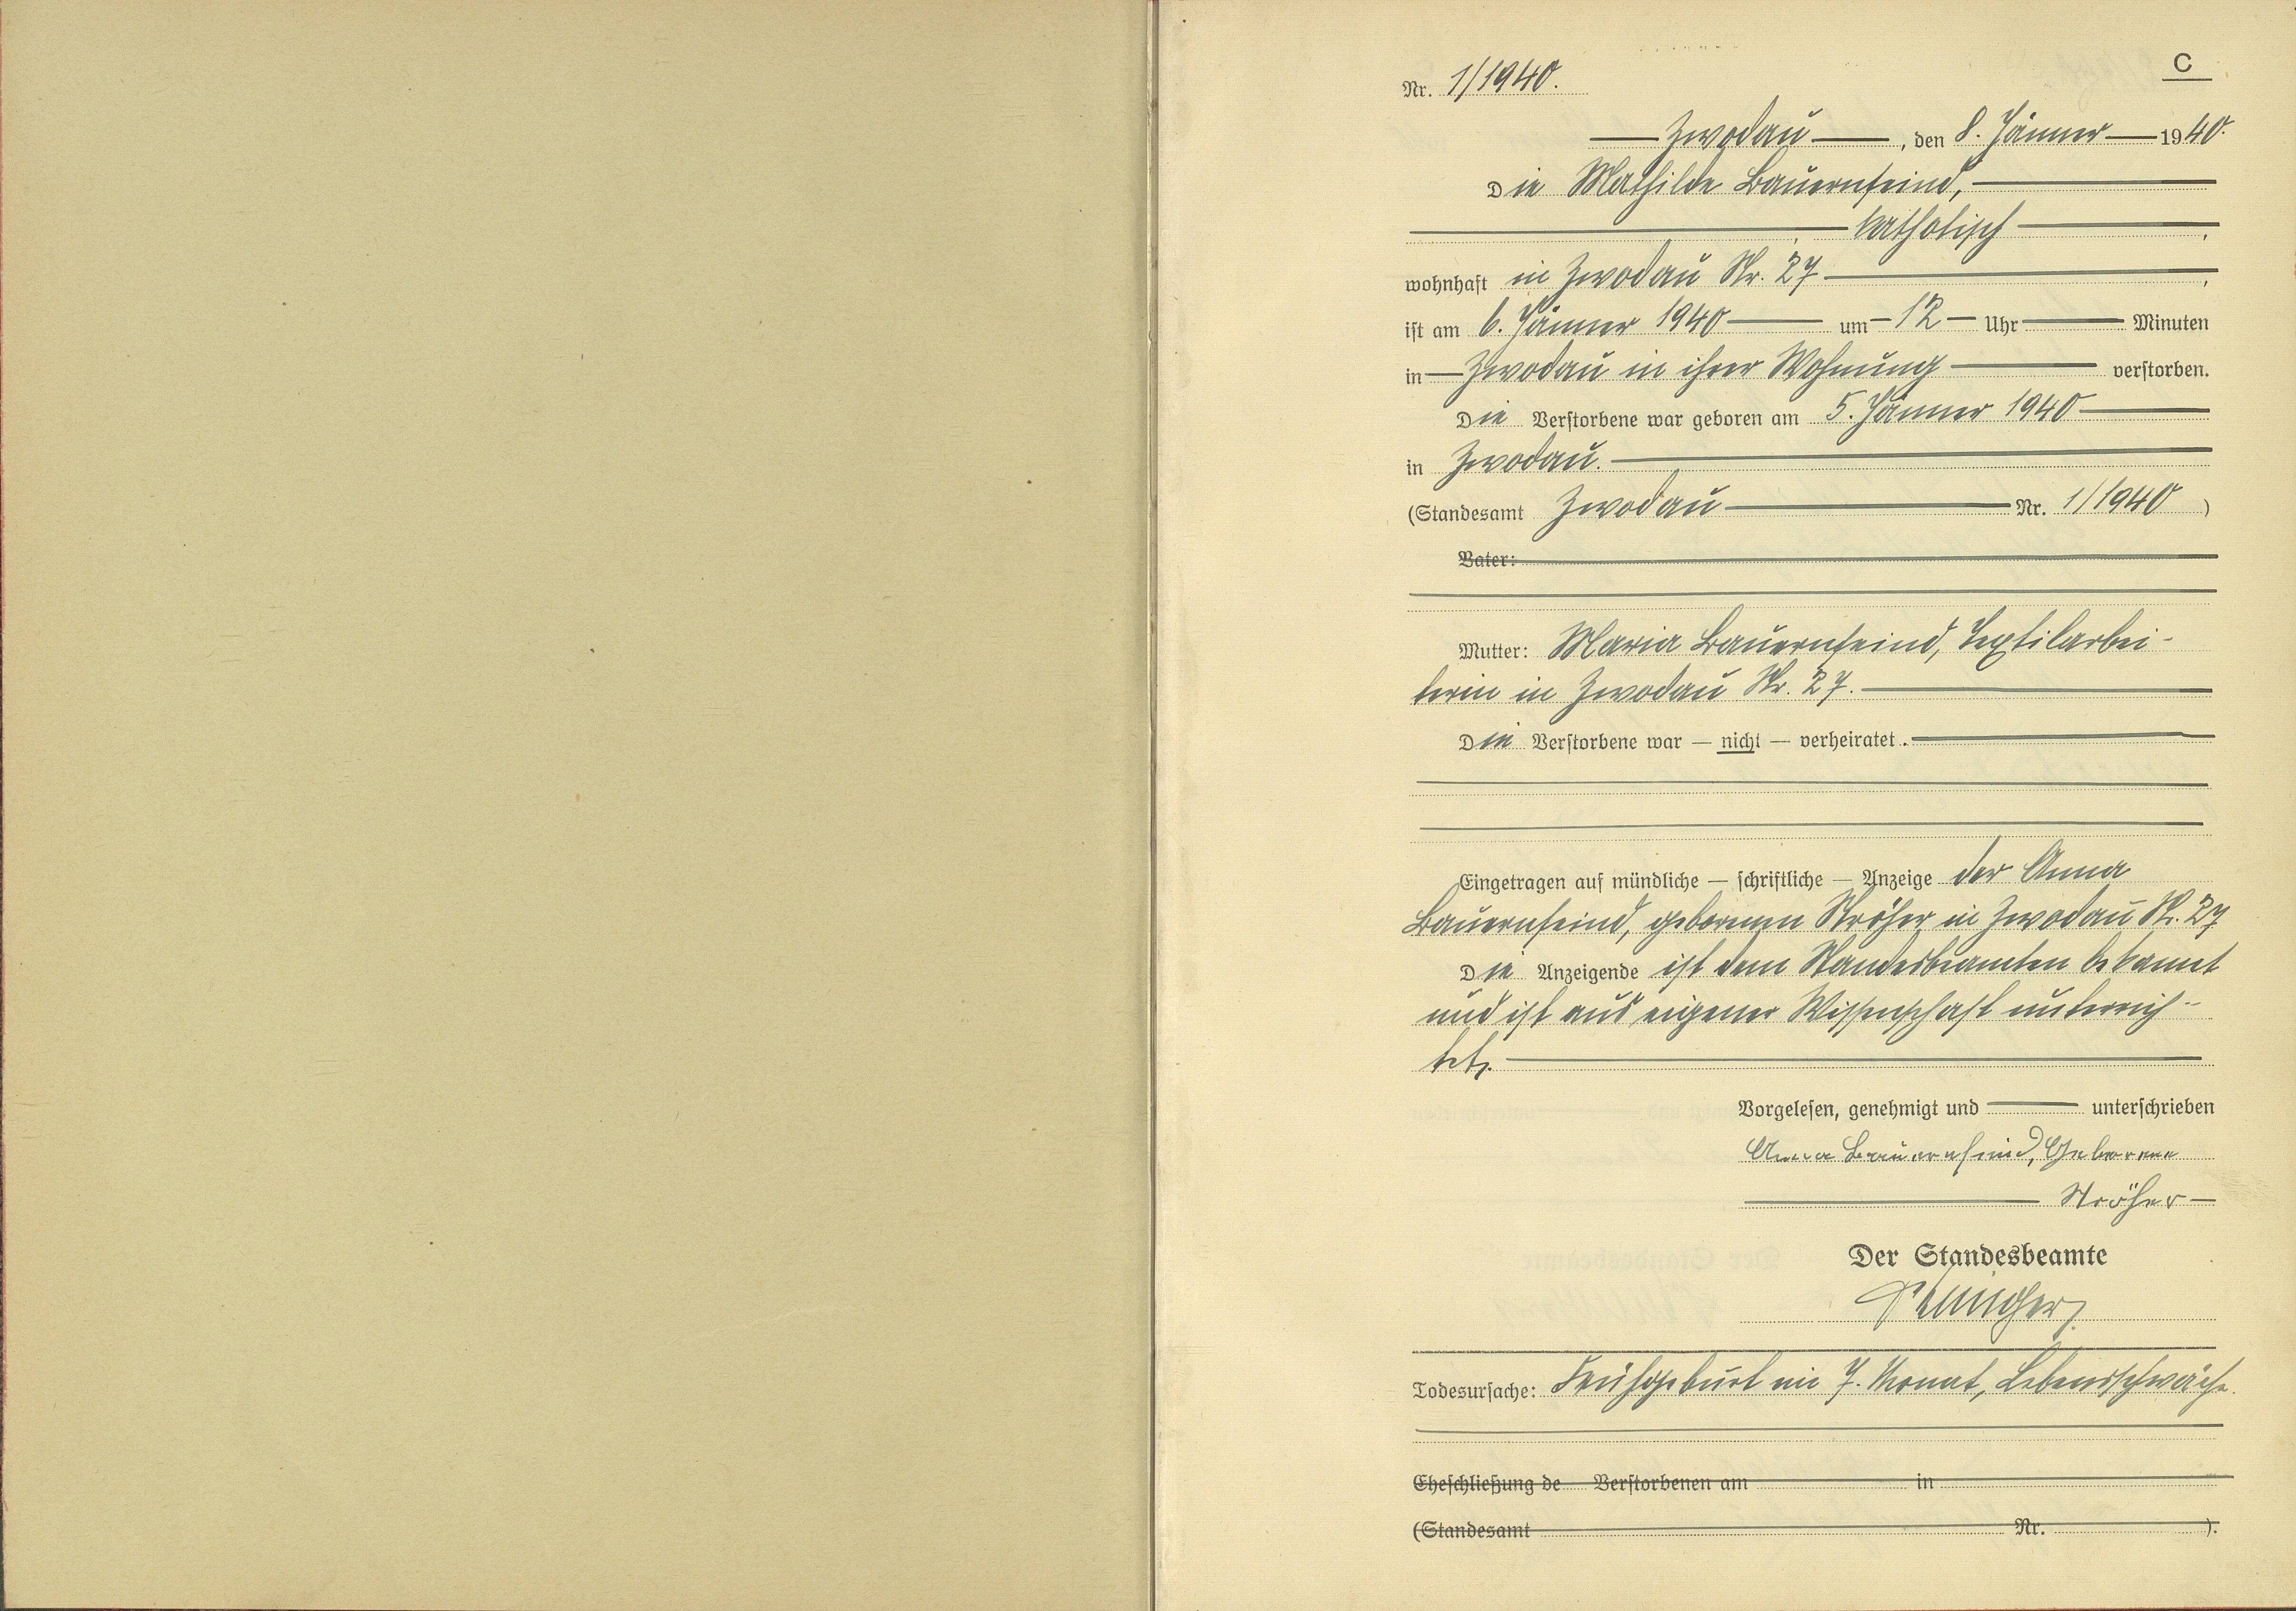 C
Nr. 1/1940.
Zwodau, den 8. Jänner 1940.
Die Mathilde Bauernfeind,
katholisch,
wohnhaft in Zwodau Nr. 27,
ist am 6. Jänner 1940 um 12 Uhr Minuten
in Zwodau in ihrer Wohnung verstorben.
Die Verstorbene war geboren am 5. Jänner 1940
in Zwodau.
(Standesamt Zwodau Nr. 1/1940)
Vater:
Mutter: Maria Bauernfeind, Textilarbei-
terin in Zwodau Nr. 27.
Die Verstorbene war — nicht — verheiratet.
Eingetragen auf mündliche — schriftliche — Anzeige der Anna
Bauernfeind, geborenen Ströher in Zwodau Nr. 27
Die Anzeigende ist dem Standesbeamten bekannt
und ist aus eigener Wissenschaft unterrich-
tet.
Vorgelesen, genehmigt und unterschrieben
Anna Bauernfeind, Geborene
Ströher
Der Standesbeamte
Todesursache: Frühgeburt im 7. Monat, Lebensschwäche.
Eheschließung de Verstorbenen am in
(Standesamt Nr. ).